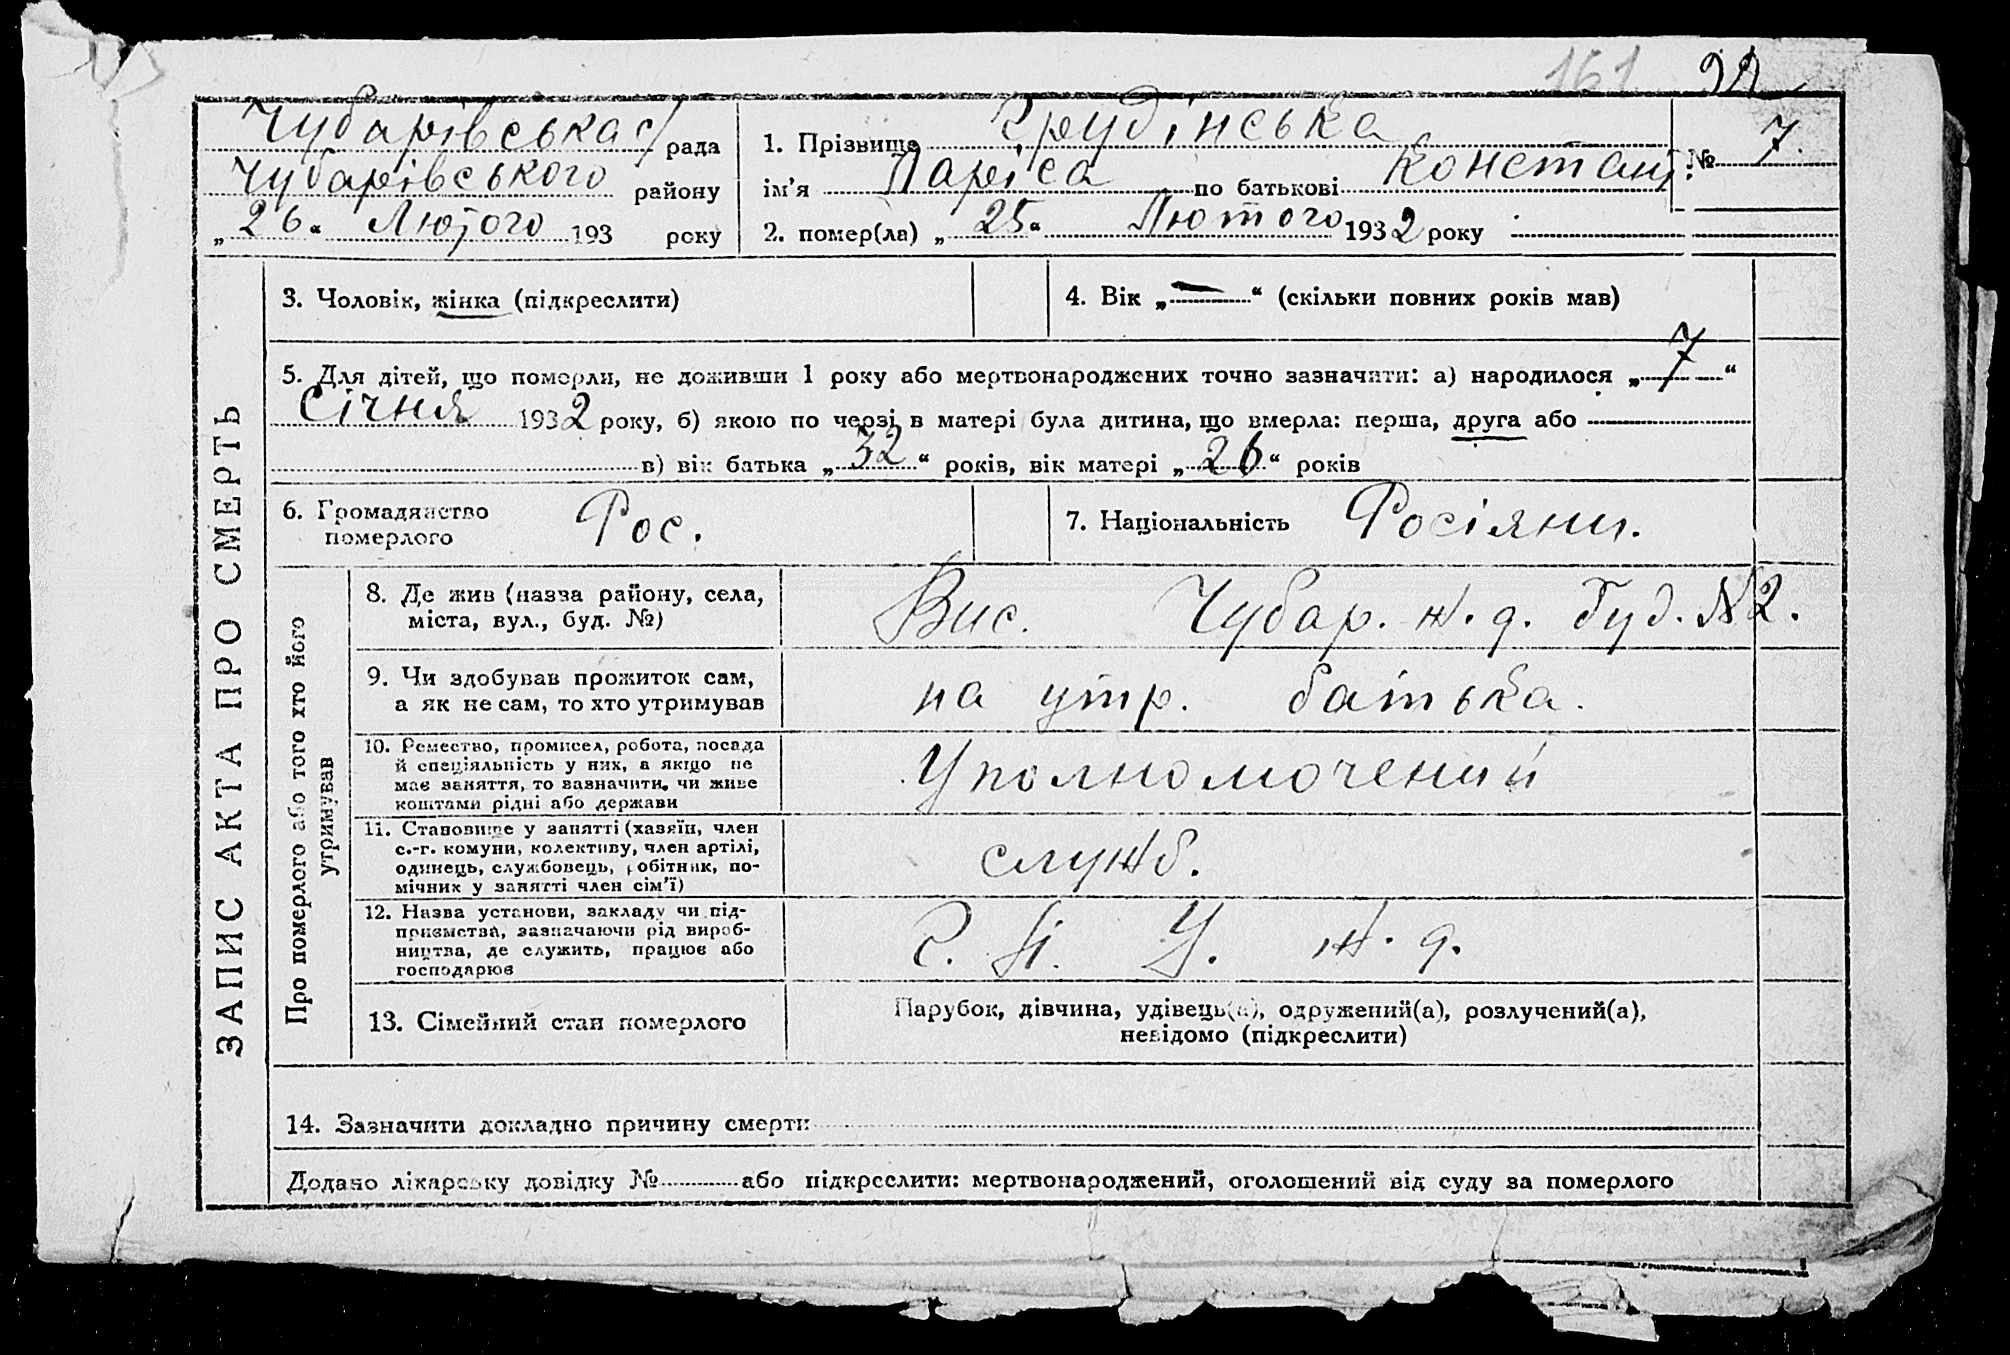 161 92
Чубарівська с/рада
Чубарівського району
„26“ Лютого 193 року
1. Прізвище Грудінська
ім'я Ларіса по батькові Констант.
№ 7.
2. помер(ла) „25“ Лютого 1932 року
ЗАПИС АКТА ПРО СМЕРТЬ
3. Чоловік, жінка (підкреслити)
4. Вік „—“ (скільки повних років мав)
5. Для дітей, що померли, не доживши 1 року або мертвонароджених точно зазначити: а) народилося „7“
Січня 1932 року, б) якою по черзі в матері була дитина, що вмерла: перша, друга або
в) вік батька „32“ років, вік матері „26“ років
6. Громадянство
померлого
Рос.
7. Національність Росіяни.
Про померлого або того хто його
утримував
8. Де жив (назва району, села,
міста, вул., буд. №)
Вис. Чубар. ж. д. Буд. №2.
9. Чи здобував прожиток сам,
а як не сам, то хто утримував
на утр. батька.
10. Ремество, промисел, робота, посада
й спеціяльність у них, а якщо не
має заняття, то зазначити, чи живе
коштами рідні або держави
Уполномочений
11. Становище у занятті (хазяїн, член
с.-г. комуни, колективу, член артілі,
одинець, службовець, робітник, по-
мічник у занятті член сім'ї)
служб.
12. Назва установи, закладу чи під-
приємства, зазначаючи рід вироб-
ництва, де служить, працює або
господарює
У. ж. д.
13. Сімейний стан померлого
Парубок, дівчина, удівець(а), одружений(а), розлучений(а),
невідомо (підкреслити)
14. Зазначити докладно причину смерти
Додано лікарську довідку № або підкреслити: мертвонароджений, оголошений від суду за померлого